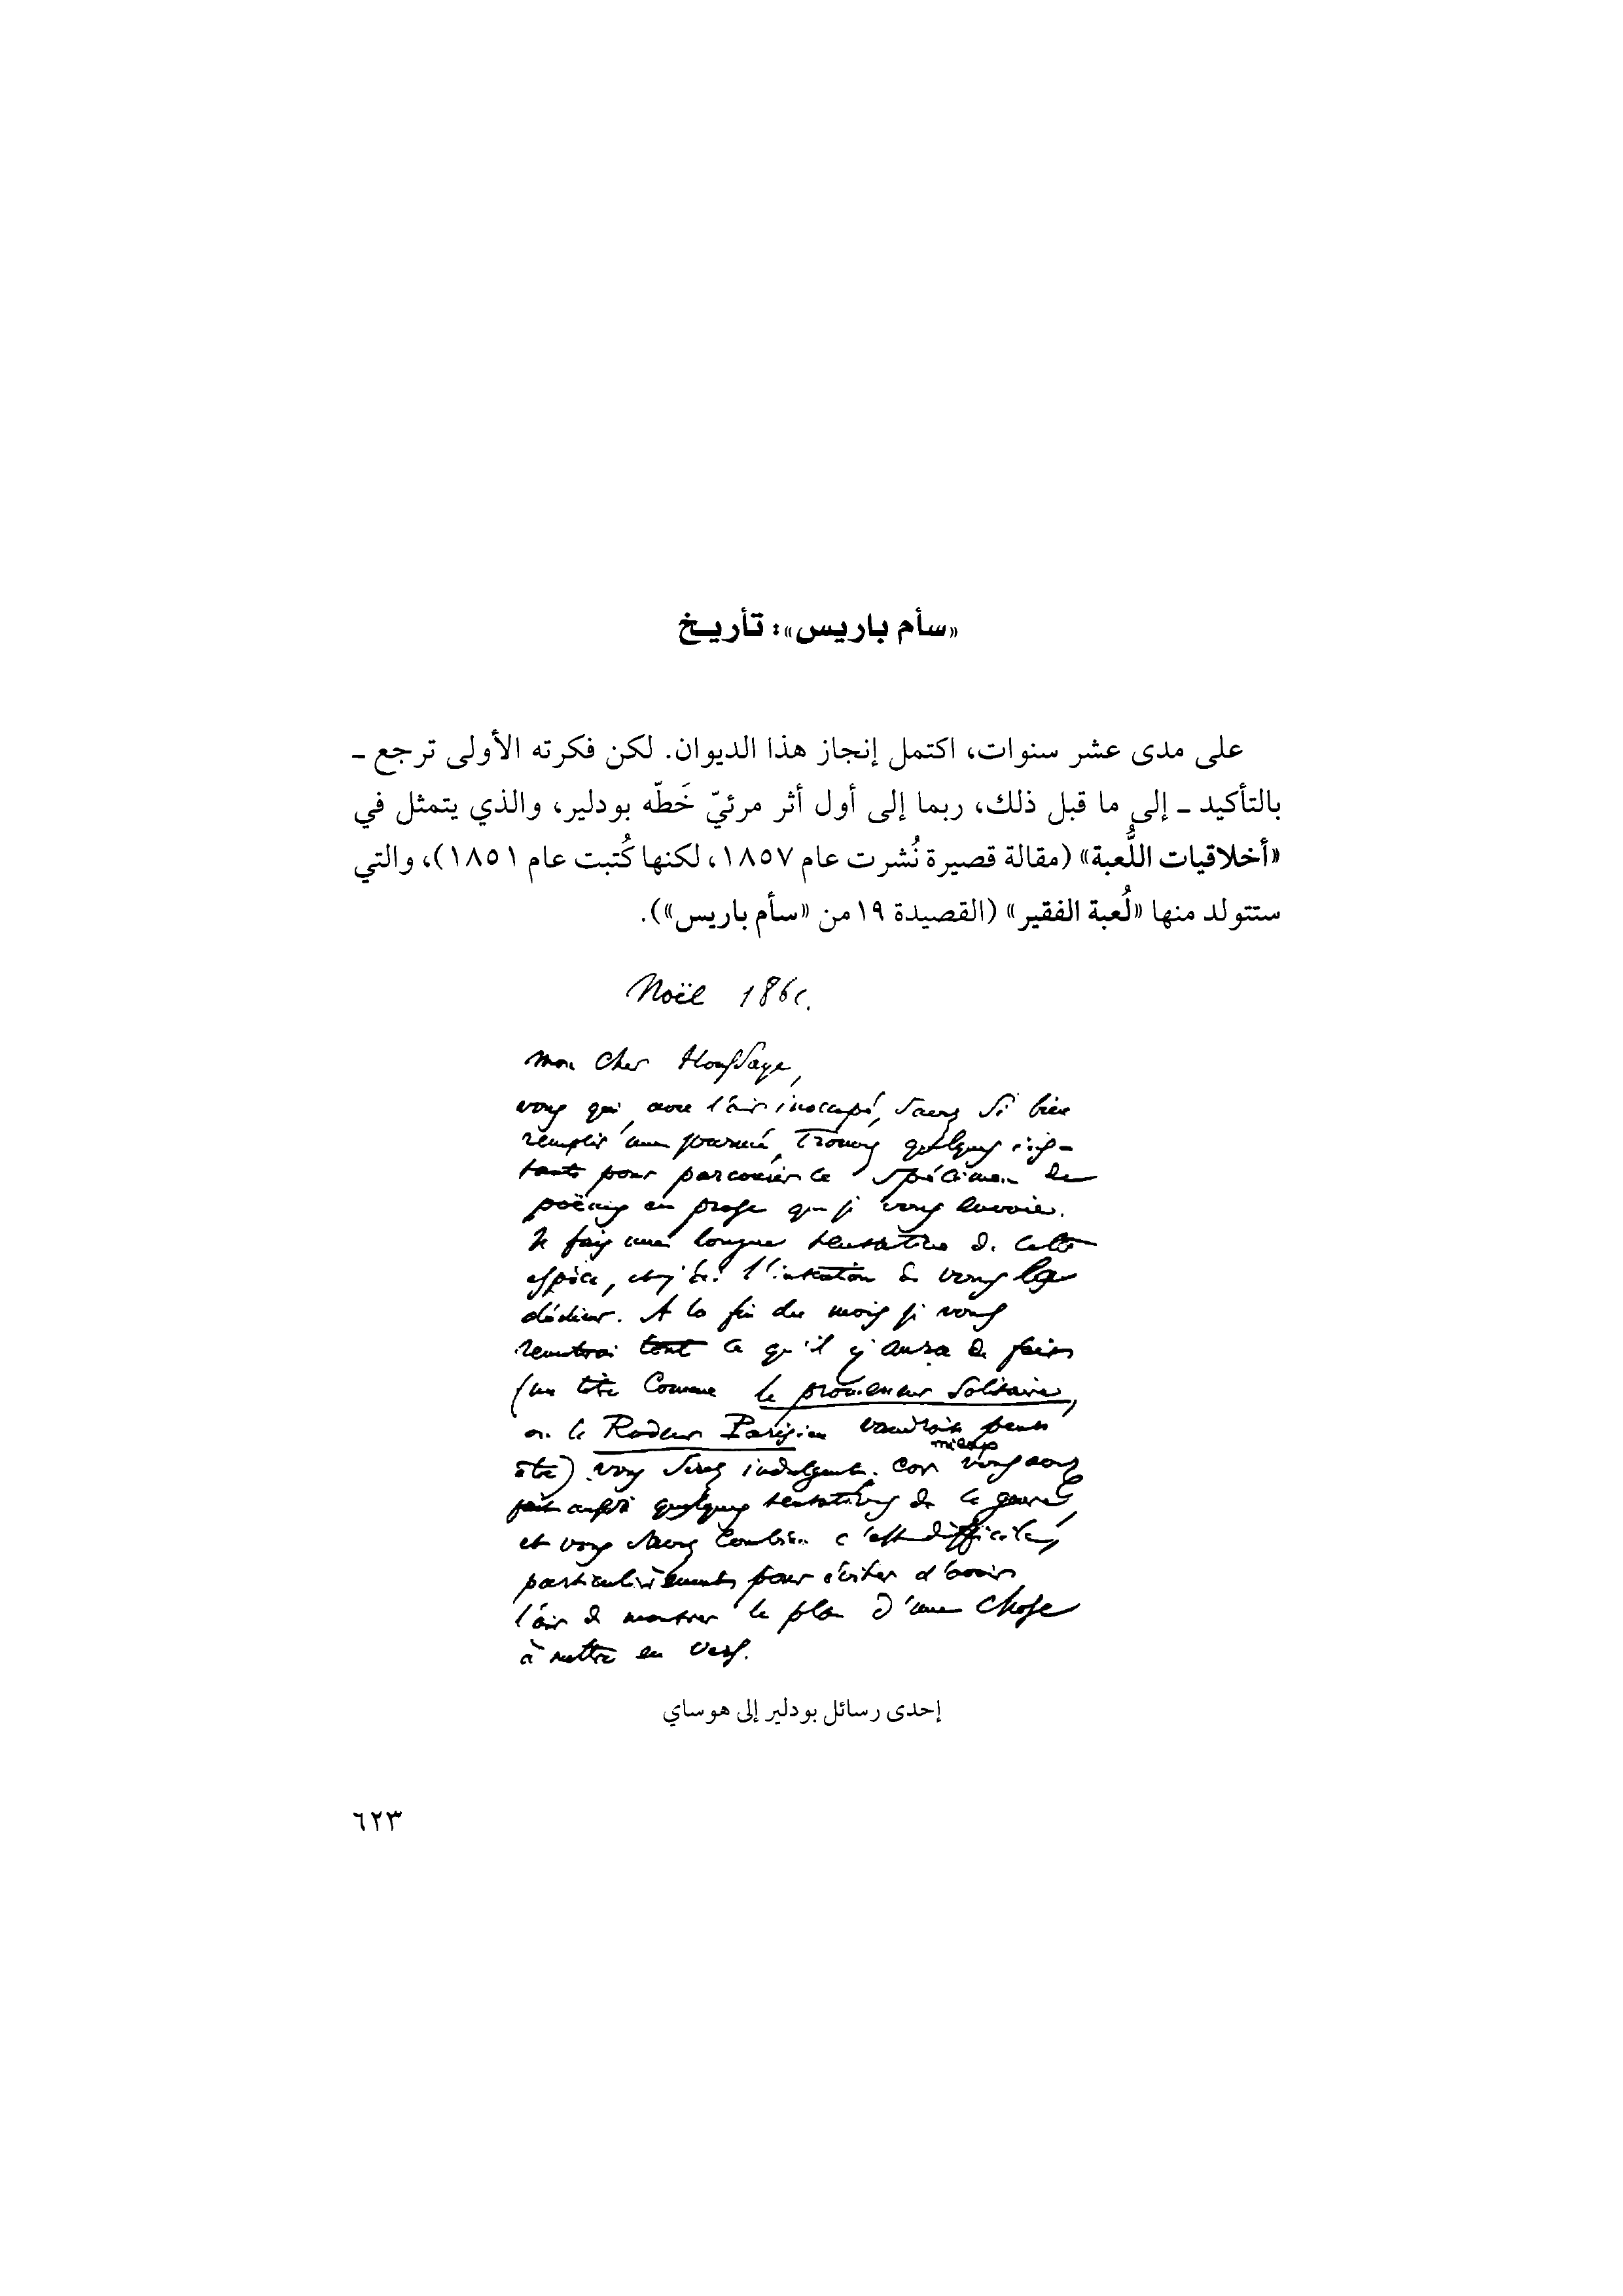 «سأم باريس»: تأريخ
على مدى عشر سنوات، اكتمل إنجاز هذا الديوان. لكن فكرته الأولى ترجع ـ
بالتأكيد ـ إلى ما قبل ذلك، ربما إلى أول أثر مرئيّ خَطّه بودلير، والذي يتمثل في
«أخلاقيات اللُّعبة» (مقالة قصيرة نُشرت عام ١٨٥٧، لكنها كُتبت عام ١٨٥١)، والتي
ستتولد منها «لُعبة الفقير» (القصيدة ١٩ من «سأم باريس»).
Noël 186
mon cher Houssaye,
vous qui, avec l'air inoccupé, savez si bien
remplir une journée, trouvez quelques ins-
tants pour parcourir ce spécimen de
poëmes en prose que je vous envoie.
Je fais une longue tentative de cette
espèce, et j'ai l'intention de vous la
dédier. A la fin du mois je vous
remettrai tout ce qu'il y aura de fait
(un titre comme le promeneur solitaire,
ou le Rodeur Parisien vaudrait peut
mieux
être) vous serez indulgent. car vous avez
fait aussi quelques tentatives de ce genre,
et vous savez combien c'est difficile,
particulièrement pour éviter d'avoir
l'air de montrer le plan d'une chose
à mettre en vers.
إحدى رسائل بودلير إلى هوساي
٦٢٣